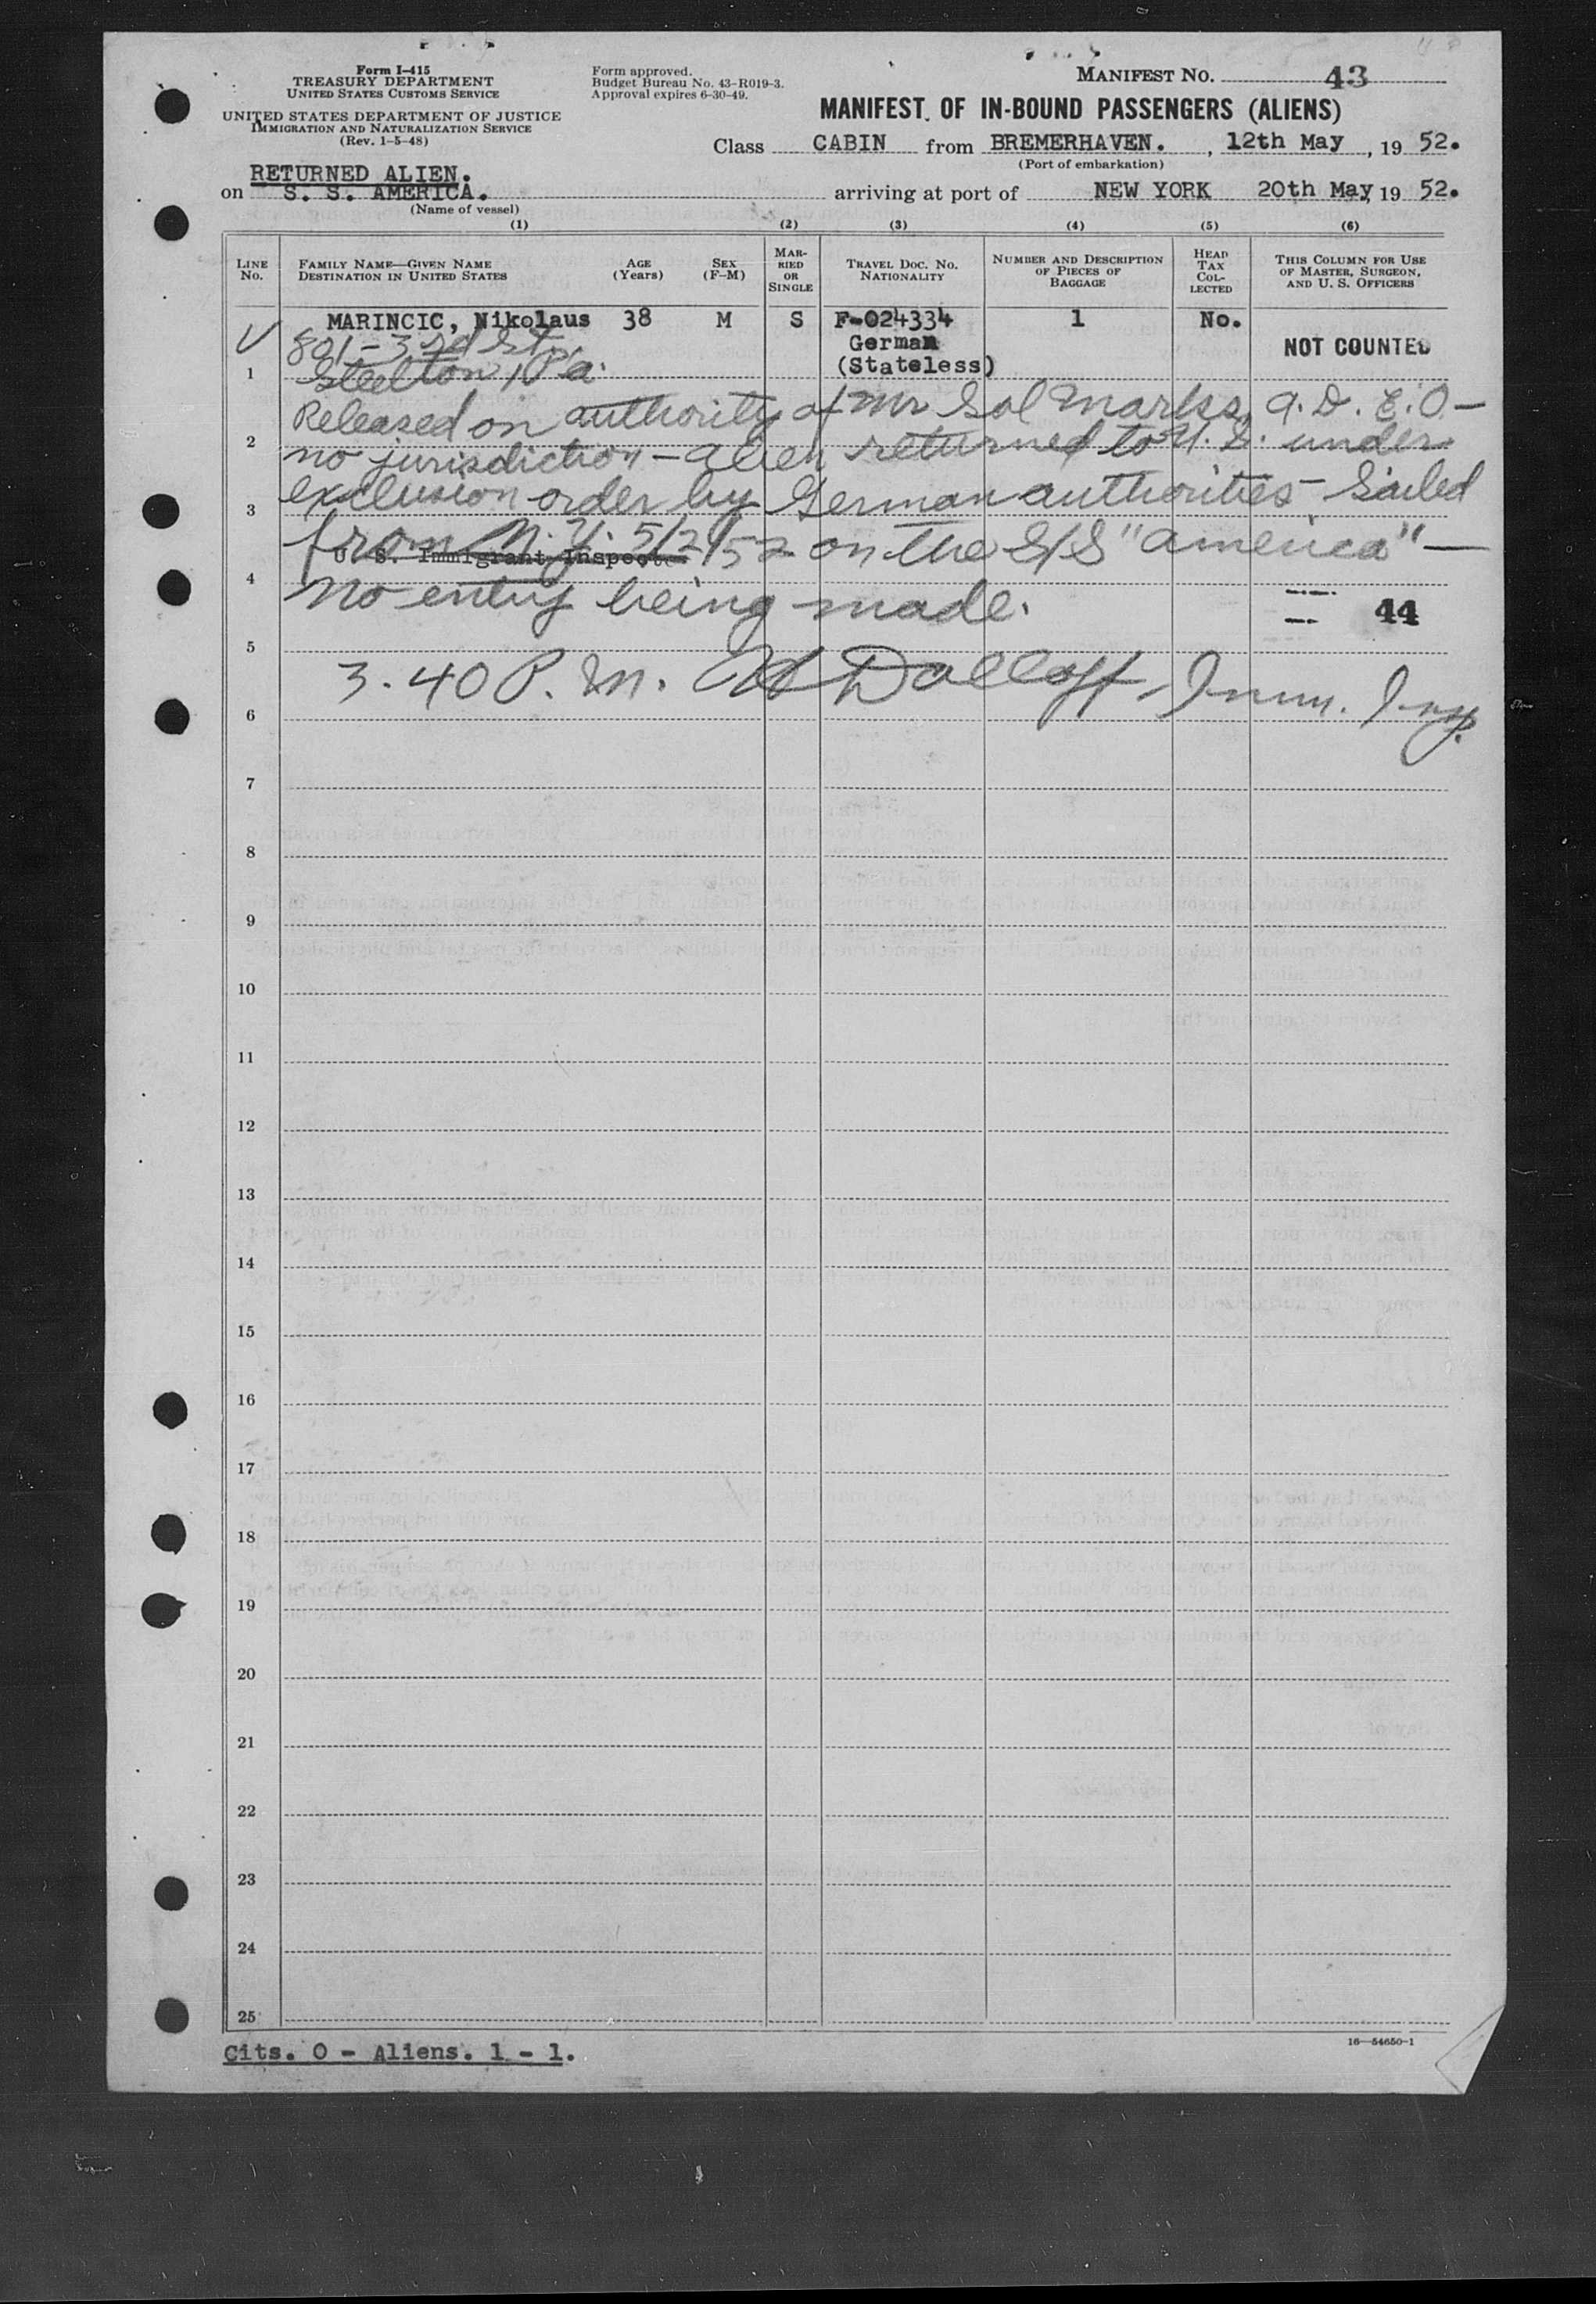 Form I-415
TREASURY DEPARTMENT
UNITED STATES CUSTOMS SERVICE
UNITED STATES DEPARTMENT OF JUSTICE
IMMIGRATION AND NATURALIZATION SERVICE
(Rev. 1-5-48)
Form approved.
Budget Bureau No. 43-R019-3.
Approval expires 6-30-49.
MANIFEST NO. 43
MANIFEST OF IN-BOUND PASSENGERS (ALIENS)
Class CABIN from BREMERHAVEN. , 12th May , 19 52.
(Port of embarkation)
RETURNED ALIEN.
on S. S. AMERICA. arriving at port of NEW YORK 20th May, 19 52.
(Name of vessel)
(1) (2) (3) (4) (5) (6)
LINE NO.
FAMILY NAME—GIVEN NAME
DESTINATION IN UNITED STATES
AGE
(YEARS)
SEX
(F-M)
MAR-
RIED
OR
SINGLE
TRAVEL DOC. NO.
NATIONALITY
NUMBER AND DESCRIPTION
OF PIECES OF
BAGGAGE
HEAD
TAX
COL-
LECTED
THIS COLUMN FOR USE
OF MASTER, SURGEON,
AND U. S. OFFICERS
MARINCIC, Nikolaus 38 M S F-024334 1 No.
801-3rd St. German NOT COUNTED
1 Steelton, Pa. (Stateless)
Released on authority of Mr Sol Marks, A.D.E.O—
2
no jurisdiction—alien returned to U.S. under
3 exclusion order by German authorities—Sailed
from N.Y. 5/2/52 on the S/S "America"—
U. S. Immigrant Inspector
4
No entry being made. 44
5
3.40 P.M. Dalloff, Imm. Insp.
6
7
8
9
10
11
12
13
14
15
16
17
18
19
20
21
22
23
24
25
Cits. 0 - Aliens. 1 - 1.
16—54650-1